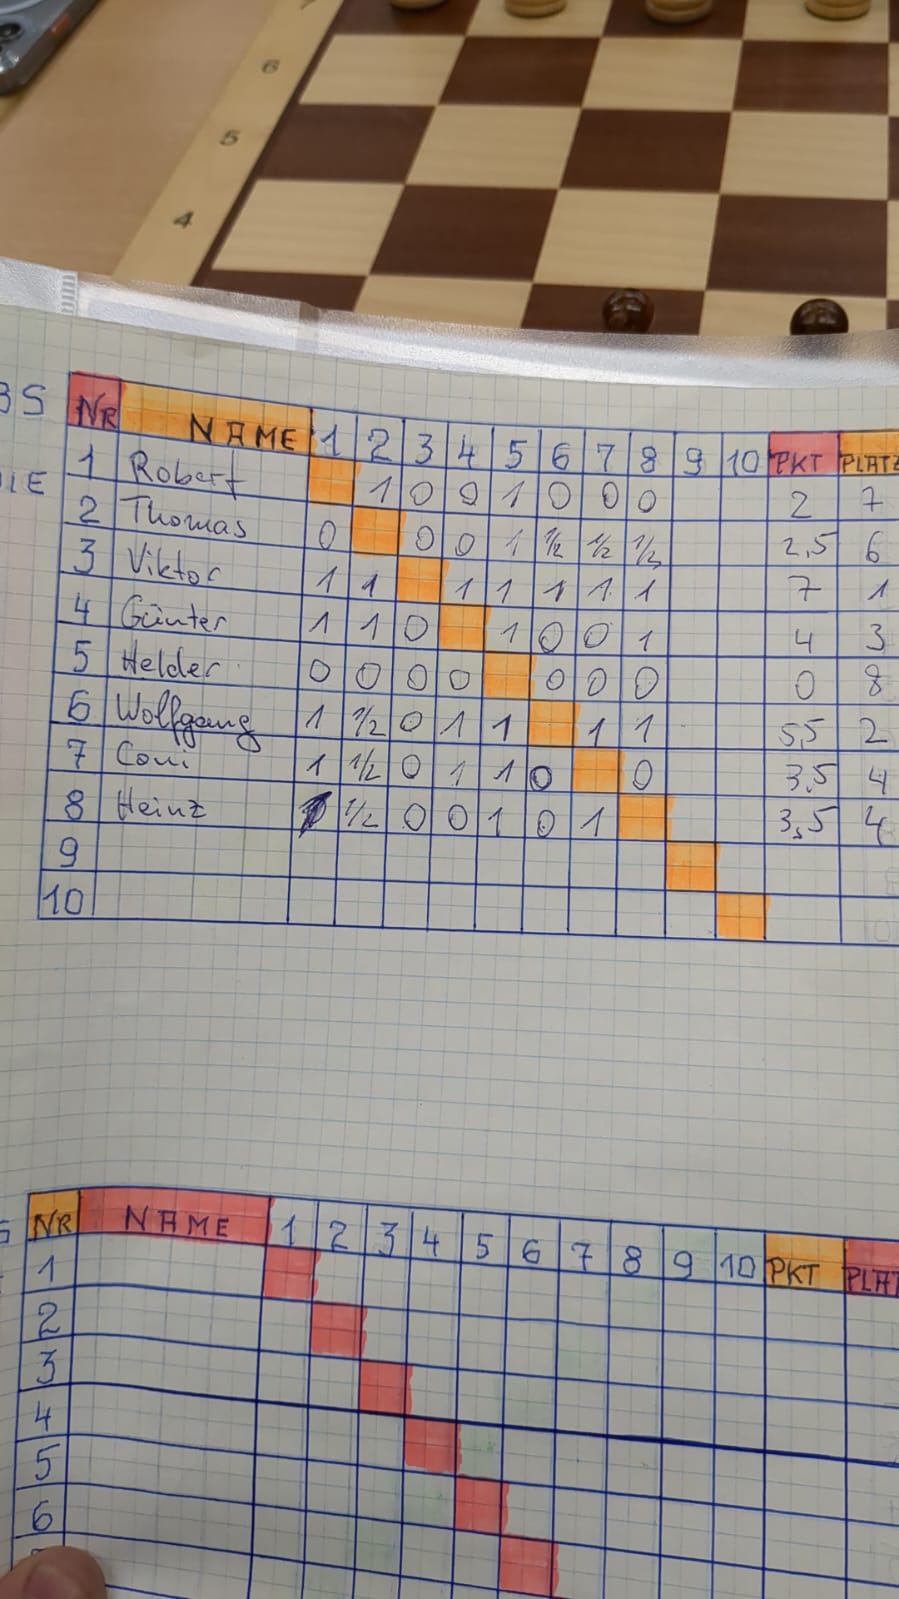 6
5
4
BS
NR NAME 1 2 3 4 5 6 7 8 9 10 PKT PLATZ
1 Robert 1 0 0 1 0 0 0 2 7
2 Thomas 0 0 0 1 1/2 1/2 1/2 2,5 6
3 Viktor 1 1 1 1 1 1 1 7 1
4 Günter 1 1 0 1 0 0 1 4 3
5 Helder 0 0 0 0 0 0 0 0 8
6 Wolfgang 1 1/2 0 1 1 1 1 5,5 2
7 Coni 1 1/2 0 1 1 0 0 3,5 4
8 Heinz 1 1/2 0 0 1 0 1 3,5 4
9
10
NR NAME 1 2 3 4 5 6 7 8 9 10 PKT PLAT
1
2
3
4
5
6